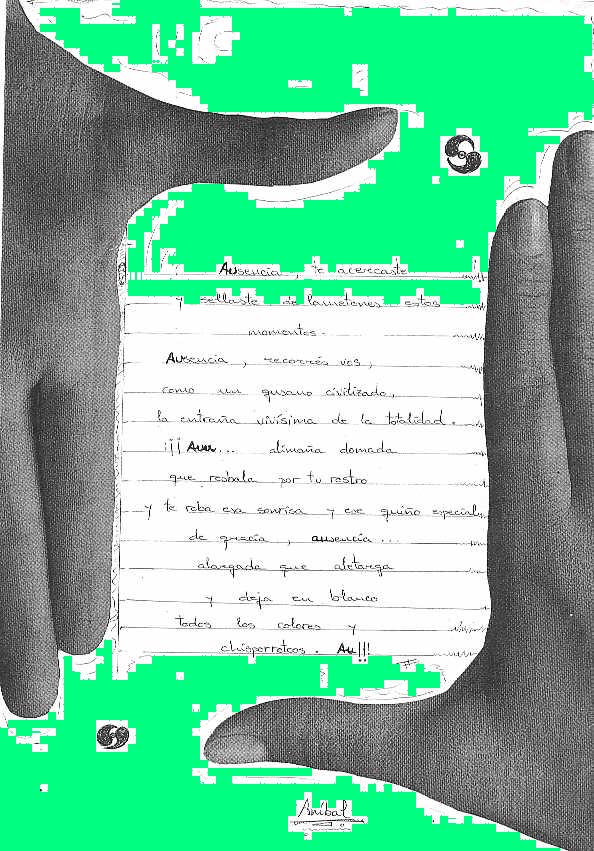 Ausencia, te acercaste
y sellaste de lametones estos
momentos.
Ausencia, recorrés vos,
como un gusano civilizado,
la entraña vivísima de la totalidad.
¡¡¡Auu... alimaña domada
que resbala por tu rostro
y te roba esa sonrisa y ese guiño especial,
de gracia, ausencia...
alargada que aletarga
y deja en blanco
todos los colores y
chisporroteos. Au!!!
Aníbal